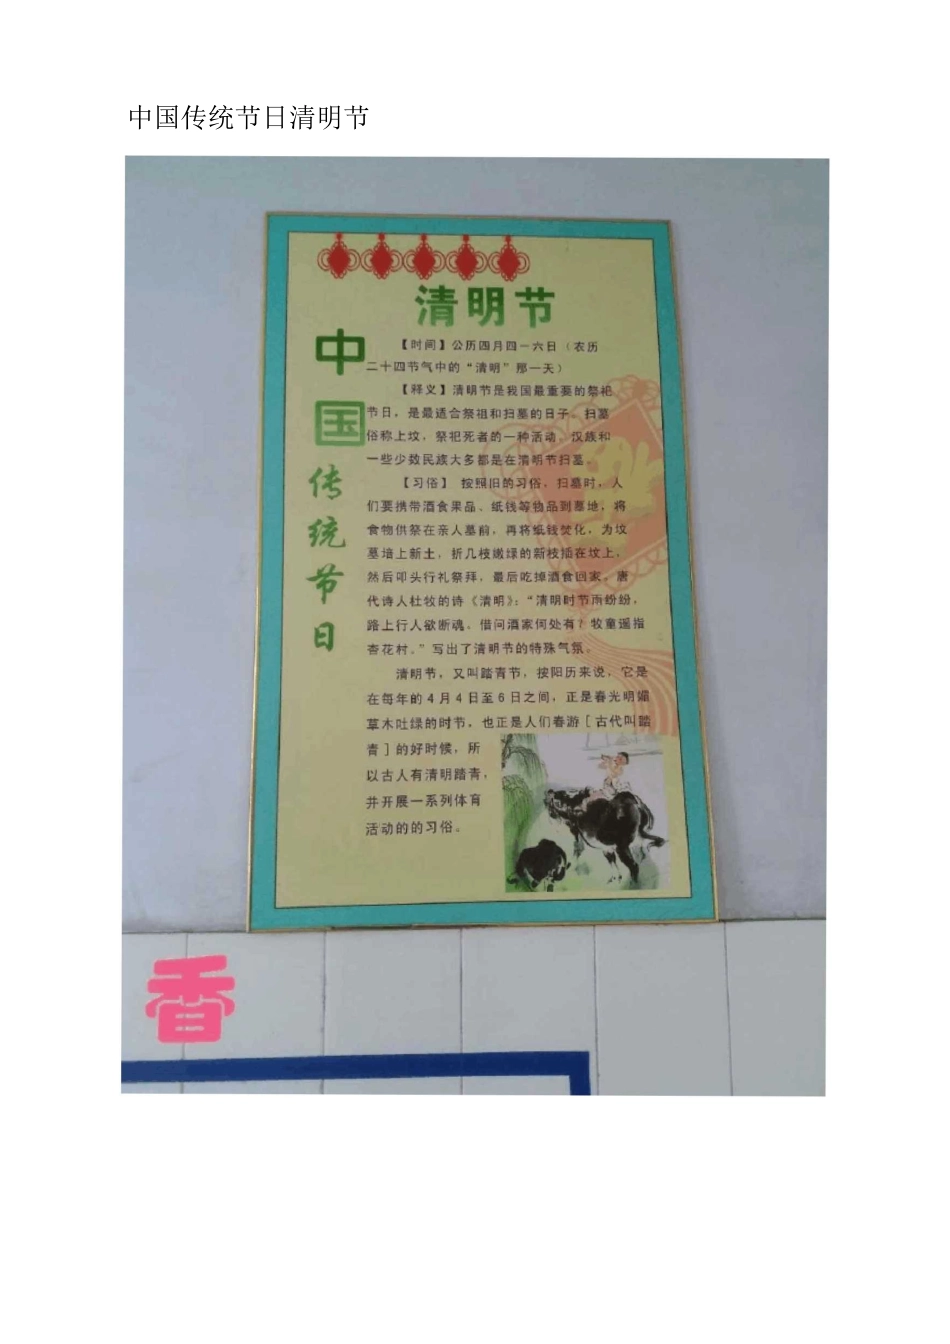 中国传统节日清明节
清明节
中国传统节日
【时间】公历四月四－六日（农历
二十四节气中的“清明”那一天）
【释义】清明节是我国最重要的祭祀
节日，是最适合祭祖和扫墓的日子。扫墓
俗称上坟，祭祀死者的一种活动。汉族和
一些少数民族大多都是在清明节扫墓。
【习俗】 按照旧的习俗，扫墓时，人
们要携带酒食果品、纸钱等物品到墓地，将
食物供祭在亲人墓前，再将纸钱焚化，为坟
墓培上新土，折几枝嫩绿的新枝插在坟上，
然后叩头行礼祭拜，最后吃掉酒食回家。唐
代诗人杜牧的诗《清明》：“清明时节雨纷纷，
路上行人欲断魂。借问酒家何处有？牧童遥指
杏花村。”写出了清明节的特殊气氛。
清明节，又叫踏青节，按阳历来说，它是
在每年的4月4日至6日之间，正是春光明媚
草木吐绿的时节，也正是人们春游［古代叫踏
青］的好时候，所
以古人有清明踏青，
并开展一系列体育
活动的的习俗。
香